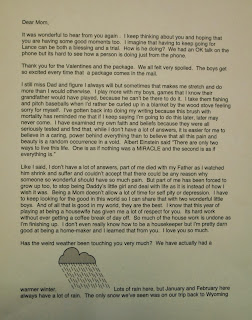 Dear Mom,
It was wonderful to hear from you again. I keep thinking about you and hoping that
you are having some good moments too. I imagine that having to keep going for
Lance can be both a blessing and a trial. How is he doing? We had an OK talk on the
phone but its hard to see how a person is doing just from the phone.
Thank you for the Valentines and the package. We all felt very spoiled. The boys get
so excited every time that a package comes in the mail.
I still miss Dad and figure I always will but sometimes that makes me stretch and do
more than I would otherwise. I play more with my boys, games that I know their
grandfather would have played, because he can't be here to do it. I take them fishing
and pitch baseballs when I'd rather be curled up in a blanket by the wood stove feeling
sorry for myself. I've gotten back into doing my writing because the fact of our
mortality has reminded me that if I keep saying I'm going to do it later, later may
never come. I have examined my own faith and beliefs because they were all
seriously tested and find that, while I don't have a lot of answers, it is easier for me to
believe in a caring, power behind everything than to believe that all this pain and
beauty is a random occurrence in a void. Albert Einstein said "There are only two
ways to live this life. One is as if nothing was a MIRACLE and the second is as if
everything is."
Like I said, I don't have a lot of answers, part of me died with my Father as I watched
him shrink and suffer and couldn't accept that there could be any reason why
someone so wonderful should have so much pain. But part of me has been forced to
grow up too, to stop being Daddy's little girl and deal with life as it is instead of how I
wish it was. Being a Mom doesn't allow a lot of time for self pity or depression. I have
to keep looking for the good in this world so I can share that with two wonderful little
boys. And of all that is good in my world, they are the best. I know that this year of
playing at being a housewife has given me a lot of respect for you. Its hard work
without ever getting a coffee break or day off. So much of the house work is undone as
I'm finishing up. I don't even really know how to be a housekeeper but I'm pretty darn
good at being a home-maker and I learned that from you. I love you so much.
Has the weird weather been touching you very much? We have actually had a
warmer winter. Lots of rain here, but January and February here
always have a lot of rain. The only snow we've seen was on our trip back to Wyoming